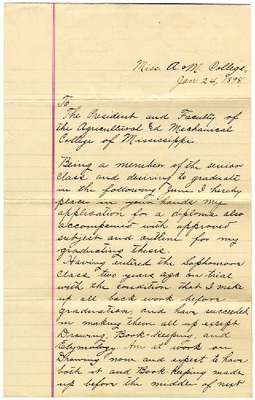 Miss. A. & M. College,
Jan. 24, 1898
To
The President and Faculty of
the Agricultural Ed Mechanical
College of Mississippi.
Being a member of the senior
Class and desiring to graduate
in the following June I hereby
place in your hands my
application for a diploma also
accompanied with approved
subject and outline for my
graduating Thesis.
Having entired the Sophomore
Class two years ago on trial
with the condition that I make
up all back work before
graduation, and have succeeded
in making them all up except
Drawing, Book-keeping, and
Etymology. Am at work on
Drawing now and expect to have
both it and Book Keeping made
up before the middle of next